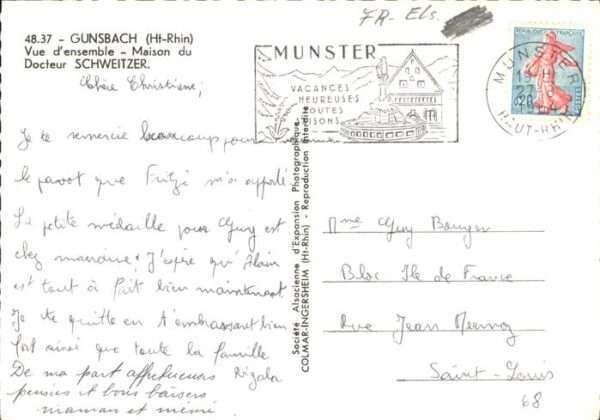 FR- Els.
48.37 - GUNSBACH (Ht-Rhin)
Vue d'ensemble - Maison du
Docteur SCHWEITZER.
MUNSTER
VACANCES
HEUREUSES
TOUTES
SAISONS
MUNSTER
19 H
27
HAUT-RHIN
0,20
Chère Christiane,
Je te remercie beaucoup pour
le pavot que Fritzi m'a apporté.
La petite médaille pour Guy est
chez marraine. J'espère qu'Alain
est tout à fait bien maintenant
Je te quitte en t'embrassant bien
fort ainsi que toute la famille
De ma part affectueuses
pensées et bons baisers
maman et mémé
Société Alsacienne d'Expansion Photographique
COLMAR-INGERSHEIM (Ht-Rhin) - Reproduction Interdite
Mme Guy
Bloc Ile de France
Rue Jean Mermoz
Saint-Louis
68